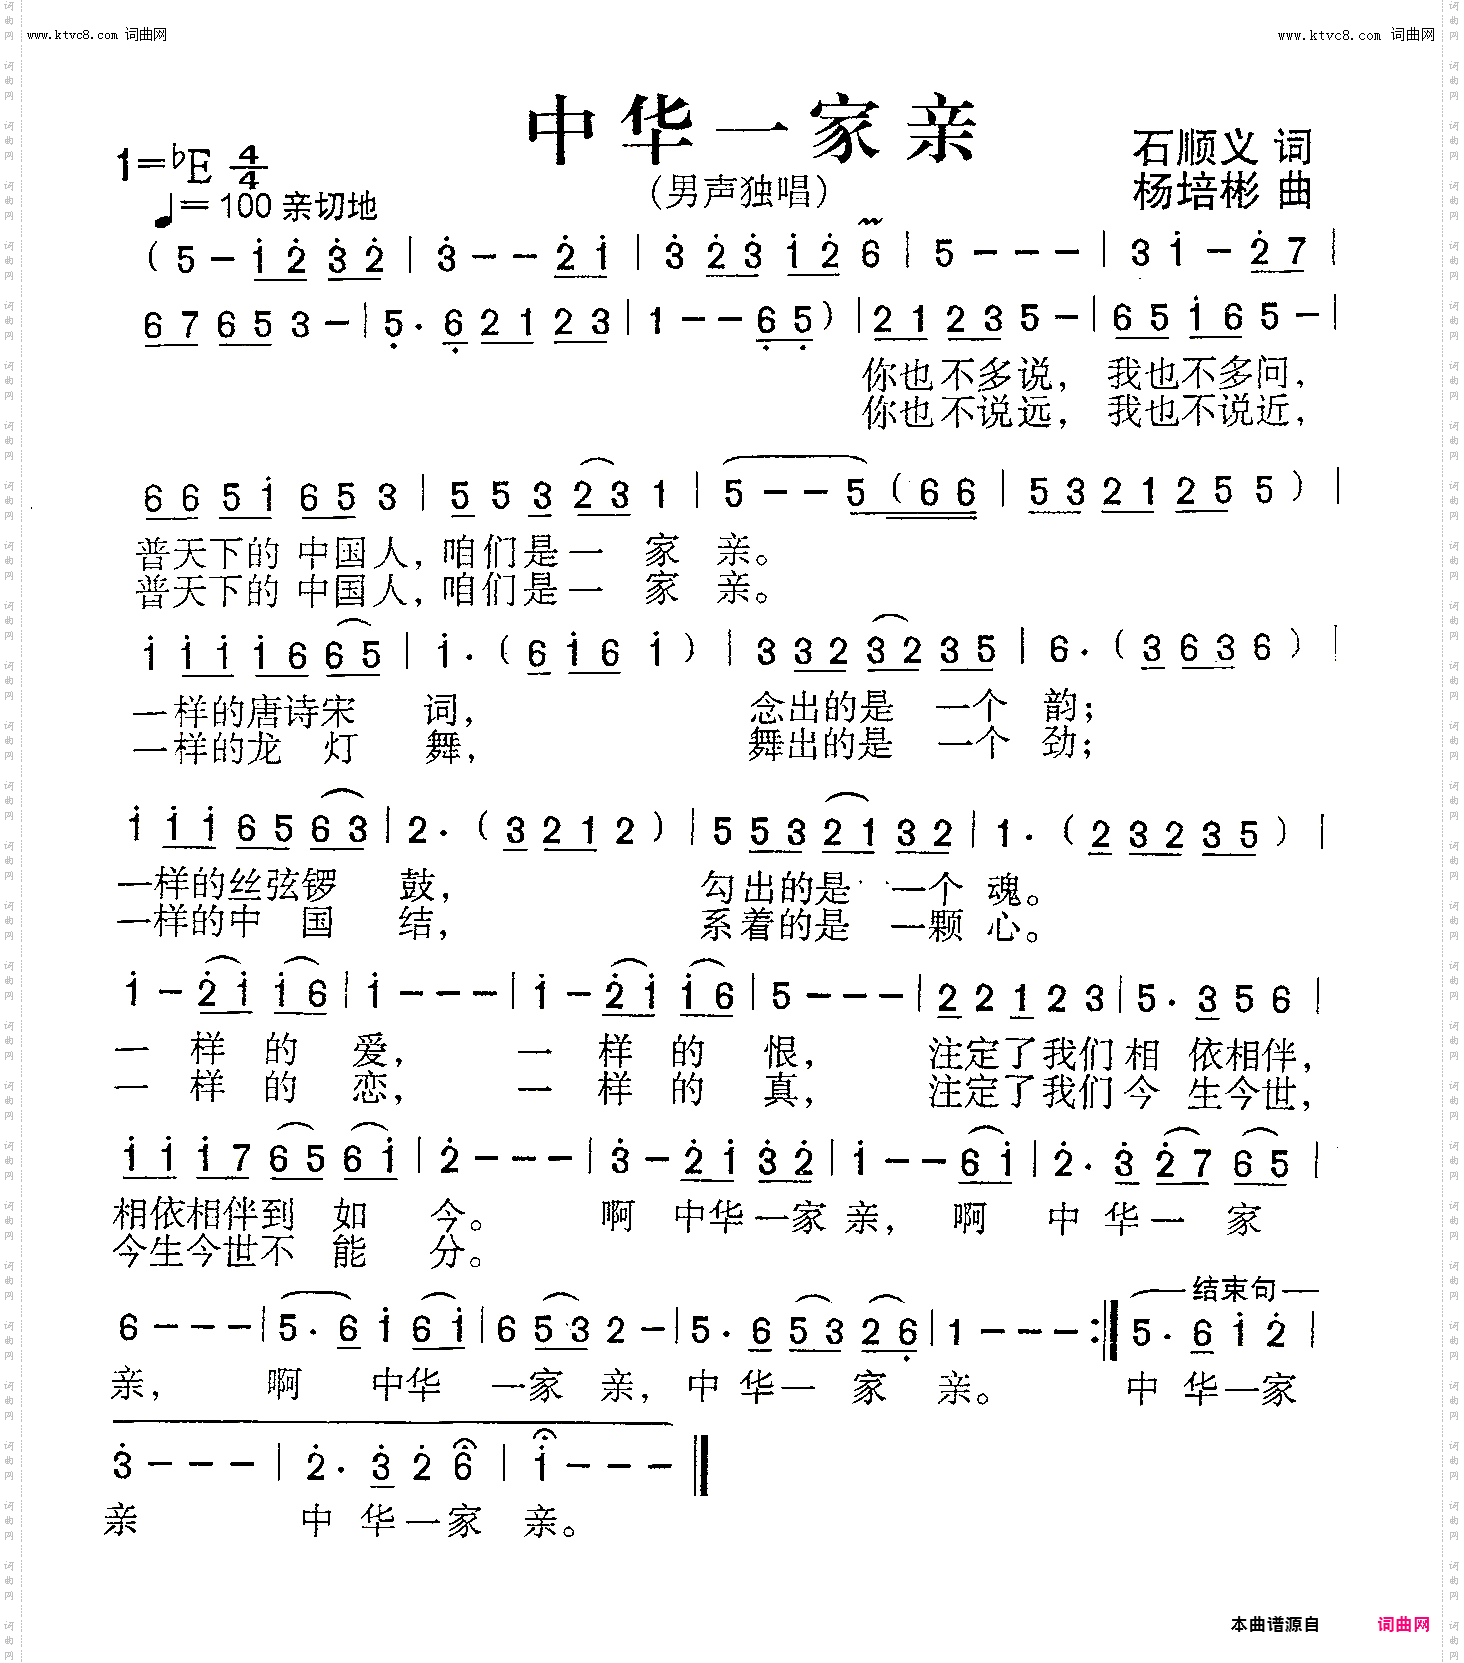 www.ktvc8.com 词曲网
www.ktvc8.com 词曲网
中华一家亲
(男声独唱)
1=♭E 4/4
♩=100 亲切地
石顺义 词
杨培彬 曲
(5 - i̇ 2̇ 3̇ 2̇ | 3̇ - - 2̇ i̇ | 3̇ 2̇ 3̇ i̇ 2̇ 6 | 5 - - - | 3 i̇ - 2̇ 7 |
6 7 6 5 3 - | 5̣ . 6̣ 2 1 2 3 | 1 - - 6̣ 5̣ ) | 2 1 2 3 5 - | 6 5 i̇ 6 5 - |
你也不多说, 我也不多问,
你也不说远, 我也不说近,
6 6 5 i̇ 6 5 3 | 5 5 3 2 3 1 | 5 - - 5 ( 6 6 | 5 3 2 1 2 5 5 ) |
普天下的 中国人, 咱们是一 家 亲。
普天下的 中国人, 咱们是一 家 亲。
i̇ i̇ i̇ i̇ 6 6 5 | i̇ . ( 6 i̇ 6 i̇ ) | 3 3 2 3 2 3 5 | 6 . ( 3 6 3 6 ) |
一样的唐诗宋 词, 念出的是 一个 韵;
一样的龙 灯 舞, 舞出的是 一个 劲;
i̇ i̇ i̇ 6 5 6 3 | 2 . ( 3 2 1 2 ) | 5 5 3 2 1 3 2 | 1 . ( 2 3 2 3 5 ) |
一样的丝弦锣 鼓, 勾出的是 一个 魂。
一样的中 国 结, 系着的是 一颗 心。
i̇ - 2̇ i̇ i̇ 6 | i̇ - - - | i̇ - 2̇ i̇ i̇ 6 | 5 - - - | 2 2 1 2 3 | 5 . 3 5 6 |
一 样 的 爱, 一 样 的 恨, 注定了我们 相 依相伴,
一 样 的 恋, 一 样 的 真, 注定了我们 今 生今世,
i̇ i̇ i̇ 7 6 5 6 i̇ | 2̇ - - - | 3̇ - 2̇ i̇ 3̇ 2̇ | i̇ - - 6 i̇ | 2̇ . 3̇ 2̇ 7 6 5 |
相依相伴到 如 今。 啊 中华一家 亲, 啊 中 华一 家
今生今世不 能 分。
结束句
6 - - - | 5 . 6 i̇ 6 i̇ | 6 5 3 2 - | 5 . 6 5 3 2 6̣ | 1 - - - :‖ 5 . 6 i̇ 2̇ |
亲, 啊 中华 一家 亲, 中 华一 家 亲。 中 华一家
3̇ - - - | 2̇ . 3̇ 2̇ 6 | i̇ - - - ‖
亲 中 华一家 亲。
本曲谱源自 词曲网